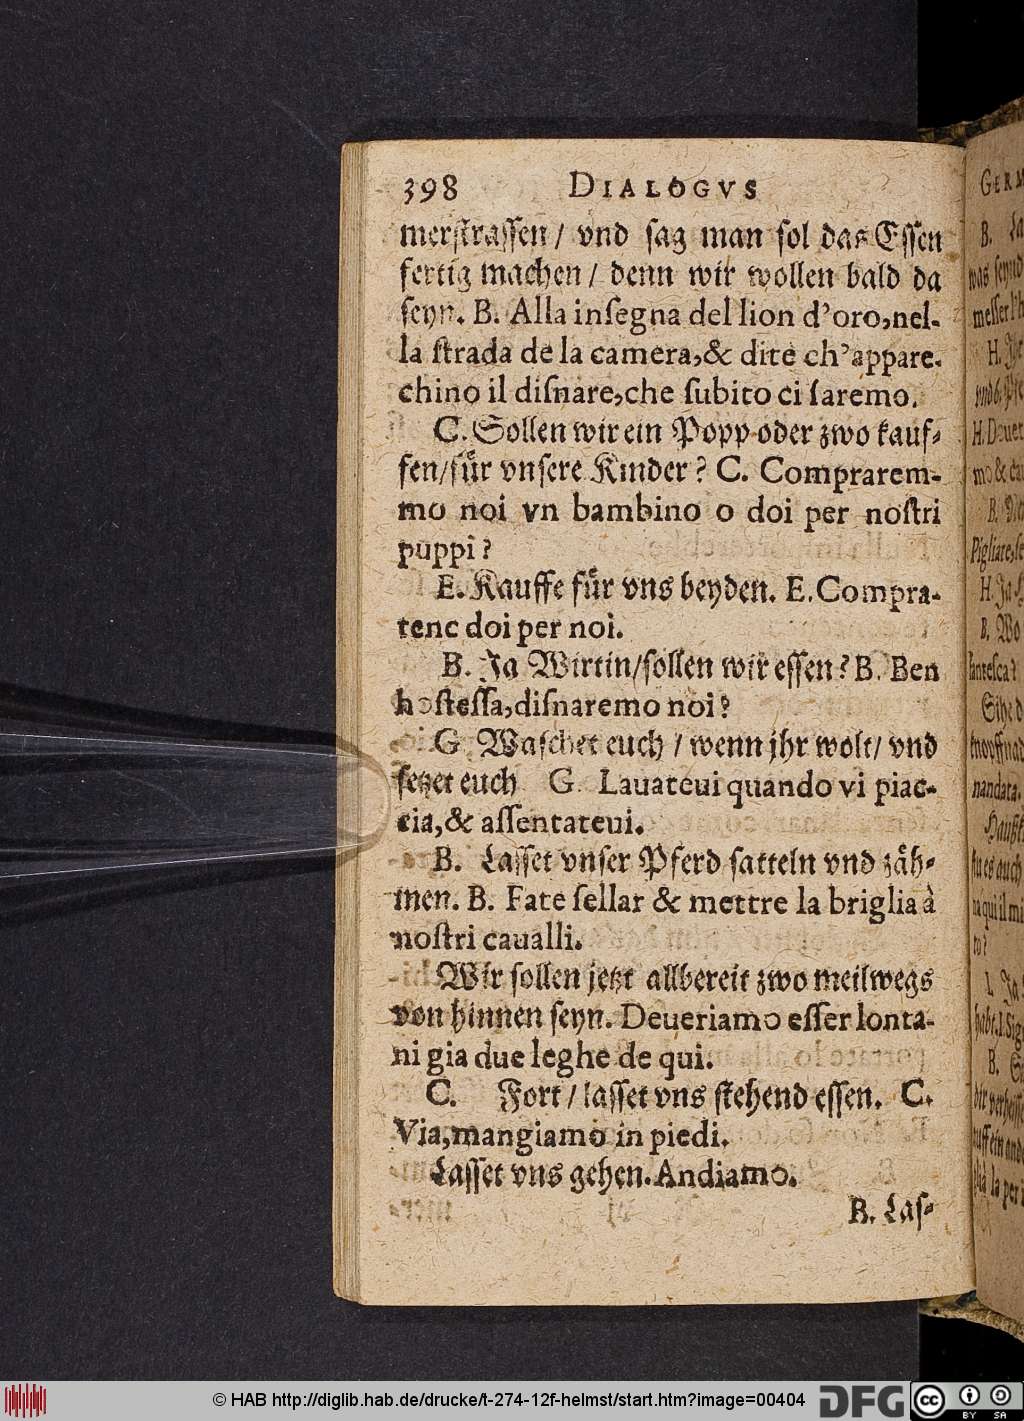 398 DIALOGVS
merſtraſſen / vnd ſag man ſol das Eſſen
fertig machen / denn wir wollen bald da
ſeyn. B. Alla inſegna del lion d'oro,nel-
la ſtrada de la camera,& dite ch'appare-
chino il diſnare,che ſubito ci ſaremo.
C. Sollen wir ein Popp oder zwo kauf-
fen/für vnſere Kinder? C. Comprarem-
mo noi vn bambino o doi per noſtri
puppi?
E. Kauffe für vns beyden. E. Compra-
tene doi per noi.
B. Ja Wirtin/ſollen wir eſſen? B. Ben
hoſteſſa,diſnaremo noi?
G Waſchet euch / wenn jhr wolt/ vnd
ſetzet euch G. Lauateui quando vi piac-
cia,& aſſentateui.
B. Laſſet vnſer Pferd ſatteln vnd zäh-
men. B. Fate ſellar & mettre la briglia à
noſtri caualli.
Wir ſollen jetzt allbereit zwo meilwegs
von hinnen ſeyn. Deueriamo eſſer lonta-
ni gia due leghe de qui.
C. Fort / laſſet vns ſtehend eſſen. C.
Via,mangiamo in piedi.
Laſſet vns gehen. Andiamo.
B. Laſ-
GERM
B. La
was ſeynd
meſſer l'h
H.
H. Douer
mo & ca
B.
Pigliare,ſe
H. Ja
B. Wo
fanteſca?
Sihe d
nandata.
qui il mi
to?
I. Ja
habt. I. Sig
B.
dir verheiſſe
auff ein ande
la per
© HAB http://diglib.hab.de/drucke/t-274-12f-helmst/start.htm?image=00404
DFG
cc BY SA